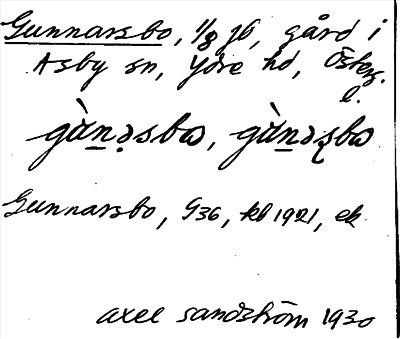 Gunnarsbo, 1/8 jb, gård i
Asby sn, Ydre hd, Österg.
l.
gùn̲ə̣sbω, gùn̲əʂbω
Gunnarsbo, G36, kb 1921, ek
Axel Sandström 1930